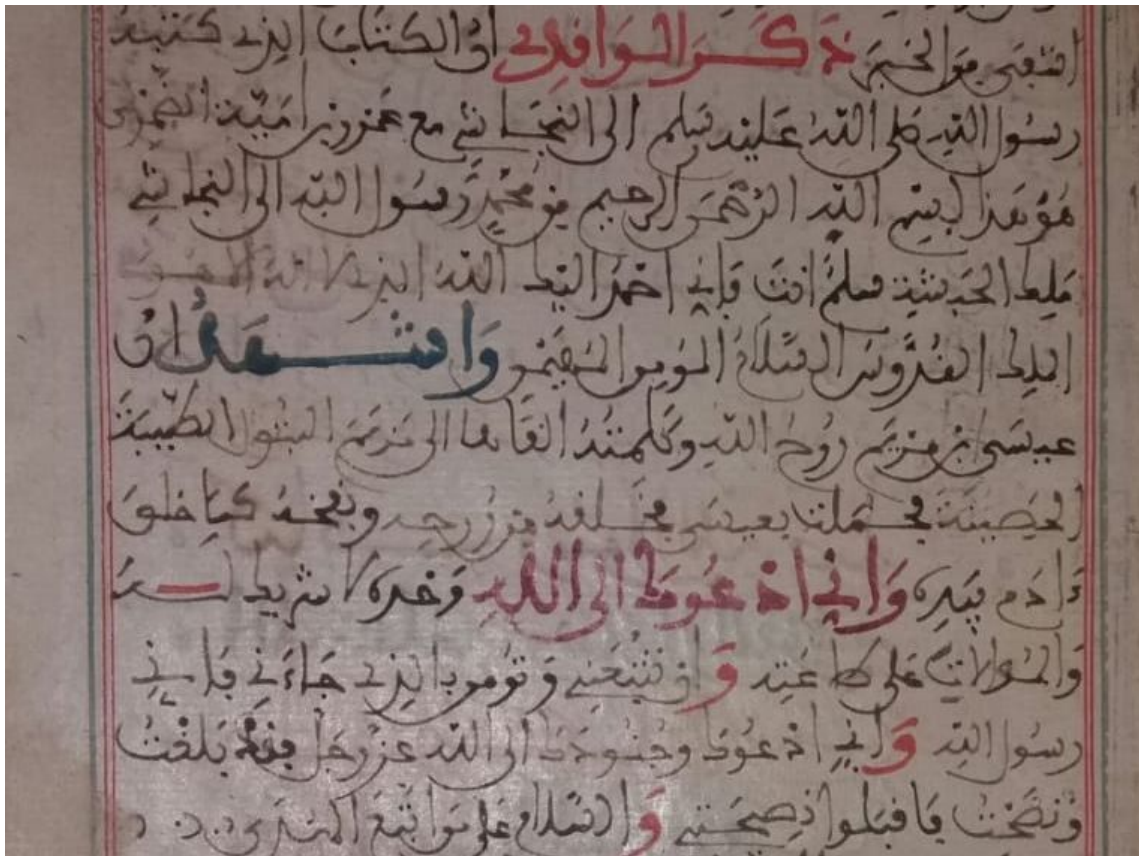 انتهى من الخبر ذكر الواقدي ان الكتاب الذي كتبه
رسول الله صلى الله عليه وسلم الى النجاشي مع عمرو بن امية الضمري
هو هذا بسم الله الرحمن الرحيم من محمد رسول الله الى النجاشي
ملك الحبشة سلم انت فاني احمد اليك الله الذي لا اله الا هو
الملك القدوس السلام المومن المهيمن واشهد ان
عيسى ابن مريم روح الله وكلمته القاها الى مريم البتول الطيبة
الحصينة فحملت بعيسى فخلقه من روحه ونفخه كما خلق
ءادم بيده واني ادعوك الى الله وحده لا شريك له
والموالات على طاعته وان تتبعني وتومن بالذي جاءني فاني
رسول الله واني ادعوك وجنودك الى الله عز وجل فقد بلغت
ونصحت فاقبلوا نصيحتي والسلام على من اتبع الهدى